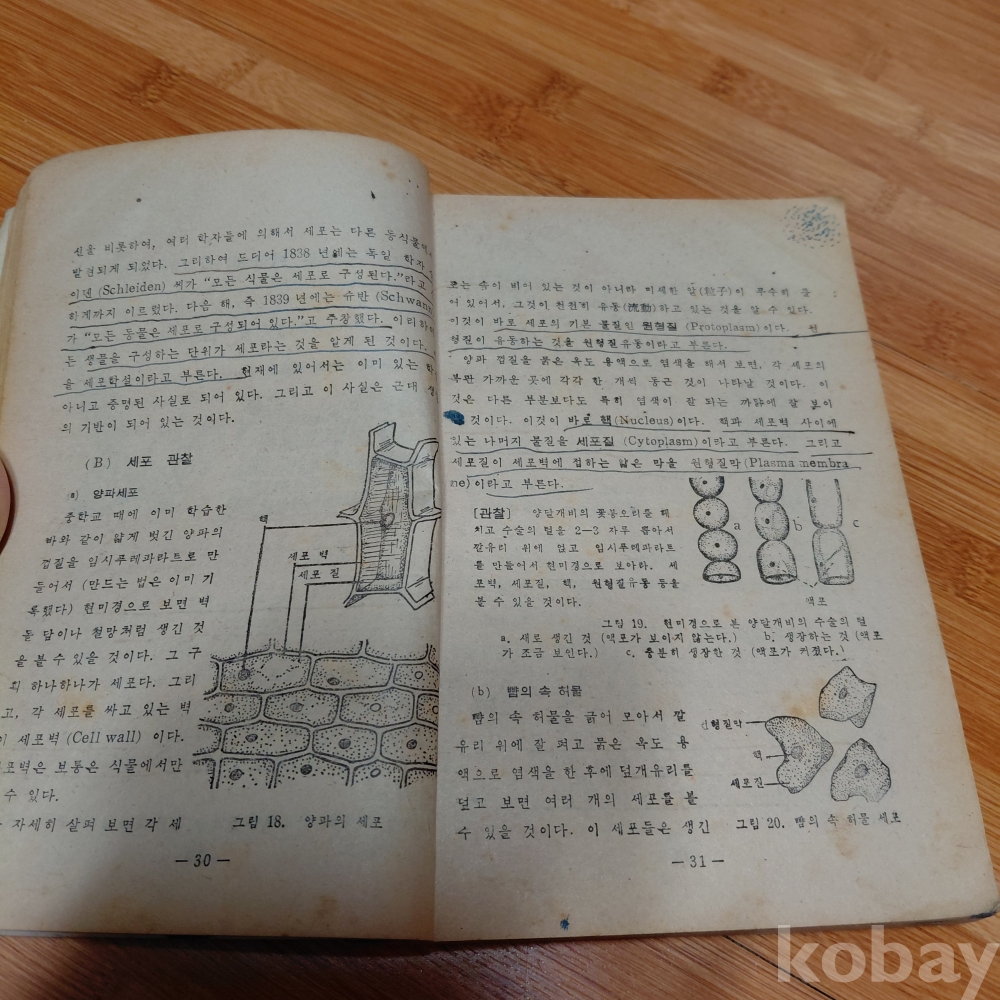 신을 비롯하여, 여러 학자들에 의해서 세포는 다른 동식물에
발견되게 되었다. 그리하여 드디어 1838 년에는 독일 학자
이덴 (Schleiden) 씨가 "모든 식물은 세포로 구성된다."라고
하게까지 이르렀다. 다음 해, 즉 1839 년에는 슈반 (Schwann
가 "모든 동물은 세포로 구성되어 있다."고 주장했다. 이리하여
든 생물을 구성하는 단위가 세포라는 것을 알게 된 것이다.
을 세포학설이라고 부른다. 현재에 있어서는 이미 있는 학
아니고 증명된 사실로 되어 있다. 그리고 이 사실은 근대 생
의 기반이 되어 있는 것이다.
(B) 세포 관찰
(a) 양파세포
중학교 때에 이미 학습한
바와 같이 얇게 벗긴 양파의
껍질을 임시푸레파라트로 만
들어서 (만드는 법은 이미 기
록했다) 현미경으로 보면 벽
돌 담이나 철망처럼 생긴 것
을 볼 수 있을 것이다. 그 구
획 하나하나가 세포다. 그리
고, 각 세포를 싸고 있는 벽
이 세포벽 (Cell wall) 이다.
포벽은 보통은 식물에서만
수 있다.
자세히 살펴 보면 각 세
핵
세포 벽
세포 질
그림 18. 양파의 세포
— 30 —
포는 속이 비어 있는 것이 아니라 미세한 알(粒子)이 무수히 들
어 있어서, 그것이 천천히 유동(流動)하고 있는 것을 알 수 있다.
이것이 바로 세포의 기본 물질인 원형질 (Protoplasm)이다. 원
형질이 유동하는 것을 원형질유동이라고 부른다.
양파 껍질을 묽은 옥도 용액으로 염색을 해서 보면, 각 세포의
복판 가까운 곳에 각각 한 개씩 둥근 것이 나타날 것이다. 이
것은 다른 부분보다도 특히 염색이 잘 되는 까닭에 잘 보이
것이다. 이것이 바로 핵(Nucleus)이다. 핵과 세포벽 사이에
있는 나머지 물질을 세포질 (Cytoplasm)이라고 부른다. 그리고
세포질이 세포벽에 접하는 얇은 막을 원형질막(Plasma membra
ne)이라고 부른다.
[관찰] 양달개비의 꽃봉오리를 헤
치고 수술의 털을 2—3 자루 뽑아서
깔유리 위에 얹고 임시푸레파라트
를 만들어서 현미경으로 보아라. 세
포벽, 세포질, 핵, 원형질유동 등을
볼 수 있을 것이다.
a b c
액포
그림 19. 현미경으로 본 양달개비의 수술의 털
a. 새로 생긴 것 (액포가 보이지 않는다.) b. 생장하는 것 (액포
가 조금 보인다.) c. 충분히 생장한 것 (액포가 커졌다.)
(b) 뺨의 속 허물
뺨의 속 허물을 긁어 모아서 깔
유리 위에 잘 펴고 묽은 옥도 용
액으로 염색을 한 후에 덮개유리를
덮고 보면 여러 개의 세포를 볼
수 있을 것이다. 이 세포들은 생긴
원형질막
핵
세포질
그림 20. 뺨의 속 허물 세포
— 31 —
kobay